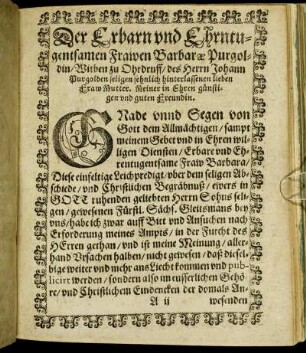 Der Erbarn vnd Ehrntu-
gentsamen Frawen Barbaræ Purgol-
din/ Witben zu Ohrdruff/ des Herrn Johann
Purgolden seligen sehnlich hinterlassenen lieben
Fraw Mutter. Meiner in Ehren günsti-
gen vnd guten Freundin.
GNade vnnd Segen von
Gott dem Allmächtigen/ sampt
meinem Gebet vnd in Ehren wil-
ligen Diensten/ Erbare vnd Eh-
rentugentsame Fraw Barbara/
Diese einfeltige Leichpredigt/ vber dem seligen Ab-
schiede/ vnd Christlichen Begräbnuß/ ewers in
GOTT ruhenden geliebten Herrn Sohns seli-
gen/ gewesenen Fürstl. Sächs. Gleitsmans bey
vns/ habe ich zwar auff Bitt vnd Ansuchen nach
Erforderung meines Ampts/ in der Furcht des
HErren gethan/ vnd ist meine Meinung/ aller-
hand Vrsachen halben/ nicht gewesen/ daß diesel-
bige weiter vnd mehr ans Liecht kommen vnd pub-
licirt werden/ sondern also im eusserlichen Gehö-
re/ vnd Christlichem Eindencken der domals An-
A ii wesenden